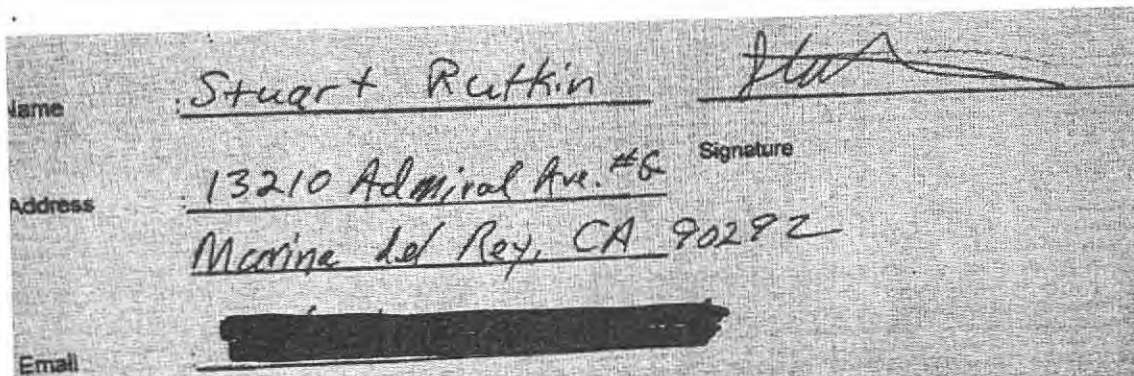 Name Stuart Rutkin
Signature
Address 13210 Admiral Ave. #G
Marina del Rey, CA 90292
Email